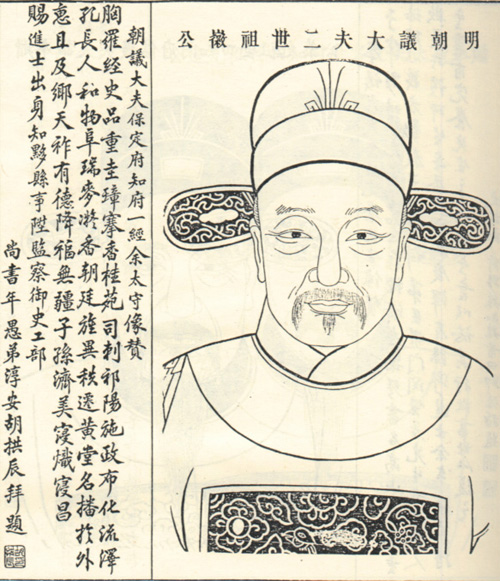 明朝議大夫二世祖徽公
朝議大夫保定府知府一經余太守像贊
胸羅經史品重圭璋搴香桂苑司刺祁陽施政布化流澤
孔長人和物阜瑞麥凝香朝廷旌異秩遷黄堂名播於外
惠且及鄉天祚有德降福無疆子孫濟美寖熾寖昌
賜進士出身知黟縣事陞監察御史工部
尚書年愚弟淳安胡拱辰拜題